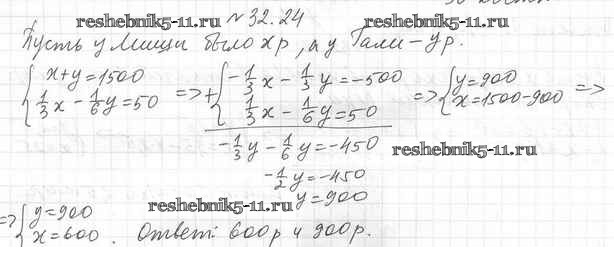 reshebnik5-11.ru №32.24 reshebnik5-11.ru
Пусть у Миши было x р, а у Гали - y р.
{x+y=1500 => +{-1/3x - 1/3y = -500 => {y=900 =>
{1/3x - 1/6y = 50 {1/3x - 1/6y = 50 {x=1500-900
-1/3y - 1/6y = -450 reshebnik5-11.ru
-1/2y = -450
y=900
reshebnik5-11.ru
=> {y=900
{x=600. Ответ: 600р и 900р.